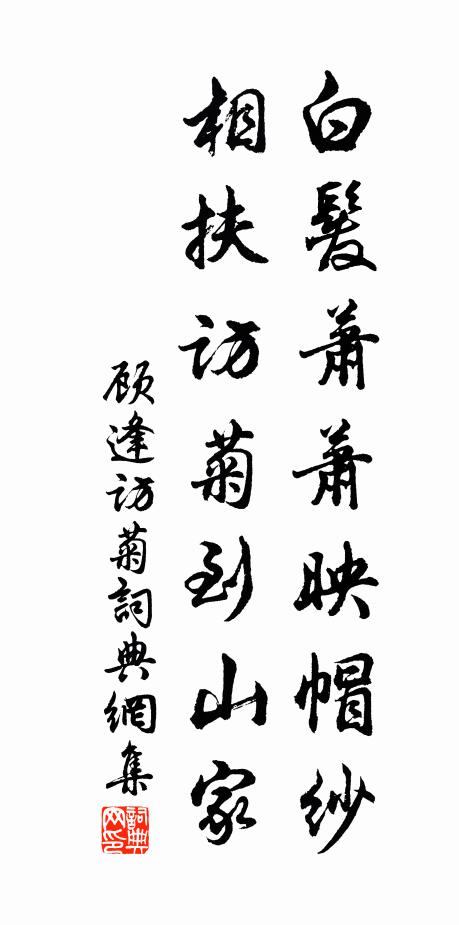 白髮蕭蕭映帽紗
相扶訪菊到山家
顾逢訪菊詞典網集
詞典网印